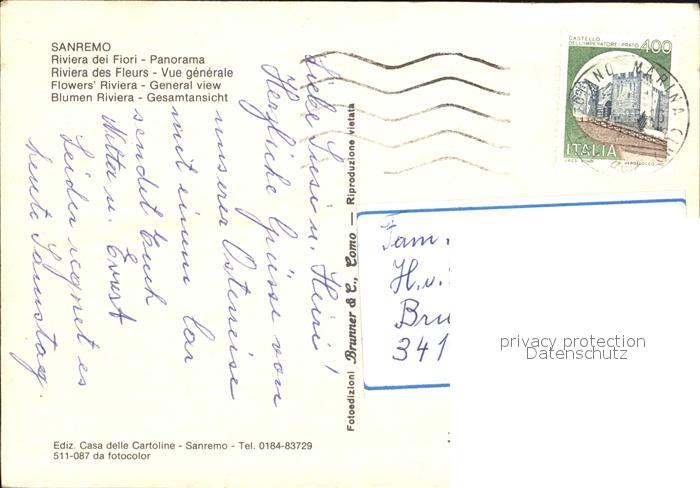 SANREMO
Riviera dei Fiori - Panorama
Riviera des Fleurs - Vue générale
Flowers' Riviera - General view
Blumen Riviera - Gesamtansicht
Liebe Susi u. Heiri!
Herzliche Grüsse von
unserer Osterreise
mit einem Car
sendet Euch
u. Ernst
Leider regnet es
heute Samstag.
Fotoedizioni Brunner & C., Como — Riproduzione vietata
CASTELLO
DELL'IMPERATORE-PRATO 400
ITALIA
ANO MARINA
Fam.
H.u.
Bru
341
privacy protection
Datenschutz
Ediz. Casa delle Cartoline - Sanremo - Tel. 0184-83729
511-087 da fotocolor